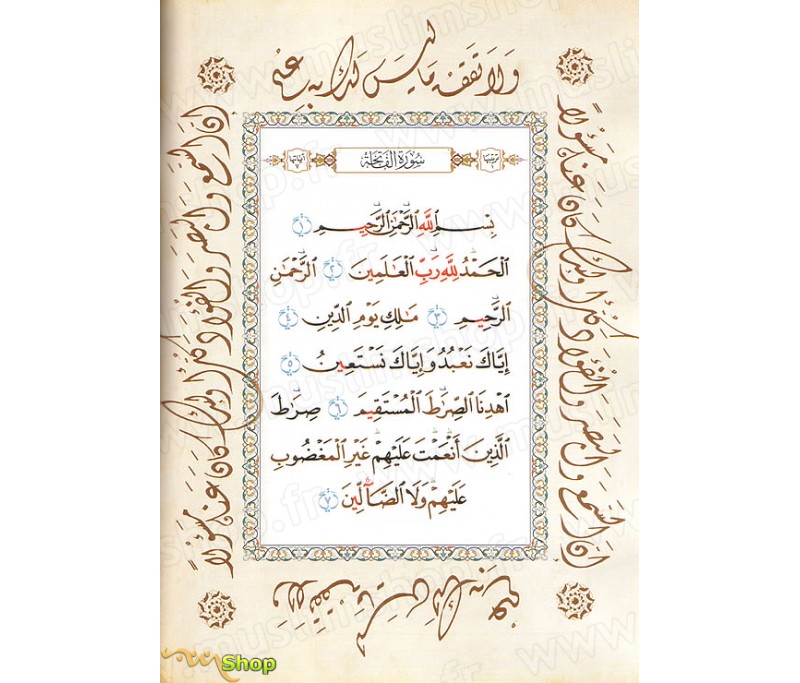 ولا تقف ما ليس لك به علم
ترتيبها ١
سورة الفاتحة
آياتها ٧
بِسْمِ ٱللَّهِ ٱلرَّحْمَٰنِ ٱلرَّحِيمِ ١
ٱلْحَمْدُ لِلَّهِ رَبِّ ٱلْعَٰلَمِينَ ٢ ٱلرَّحْمَٰنِ
ٱلرَّحِيمِ ٣ مَٰلِكِ يَوْمِ ٱلدِّينِ ٤
إِيَّاكَ نَعْبُدُ وَإِيَّاكَ نَسْتَعِينُ ٥
ٱهْدِنَا ٱلصِّرَٰطَ ٱلْمُسْتَقِيمَ ٦ صِرَٰطَ
ٱلَّذِينَ أَنْعَمْتَ عَلَيْهِمْ غَيْرِ ٱلْمَغْضُوبِ
عَلَيْهِمْ وَلَا ٱلضَّآلِّينَ ٧
إن السمع والبصر والفؤاد كل أولئك كان عنه مسؤولا
إن السمع والبصر والفؤاد كل أولئك كان عنه مسؤولا
ولا تقف ما ليس لك به علم
www.muslimshop.fr
Shop